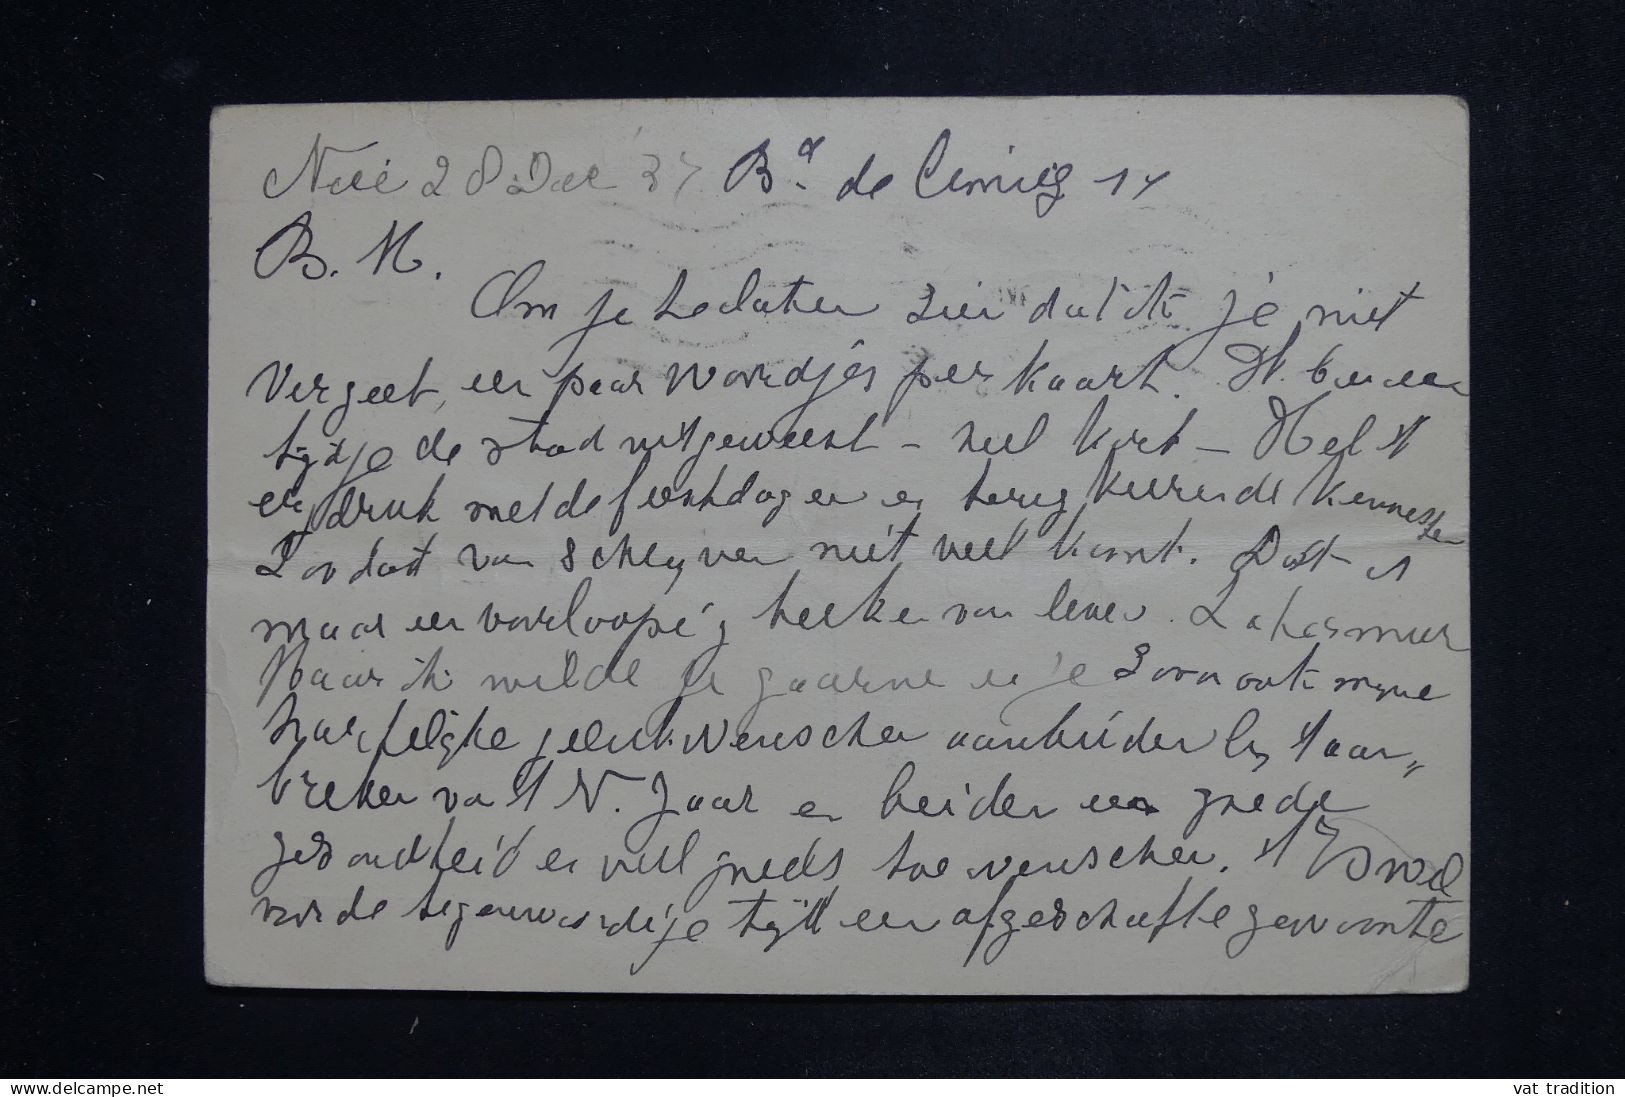 Nice 28 Dec 37 Bd. de Cimiez 14
B. M.
Om je te laten zien dat ik je niet
Vergeet, een paar woordjes per kaart.
tijdje de stad uitgeweest – heel kort –
druk met de feestdagen en terugkeerende kennissen
Zoodat van schrijven niet veel komt. Dat is
maar een voorloopig teeken van leven.
Maar ik wilde je gaarne en je zoon ook mijne
hartelijke gelukwenschen aanbieden bij 't aan„
breken van 't N. Jaar en beiden een goede
gezondheid en veel goeds toewenschen. 't Is wel
voor de tegenwoordige tijd een afgeschafte gewoonte
www.delcampe.net
vat tradition